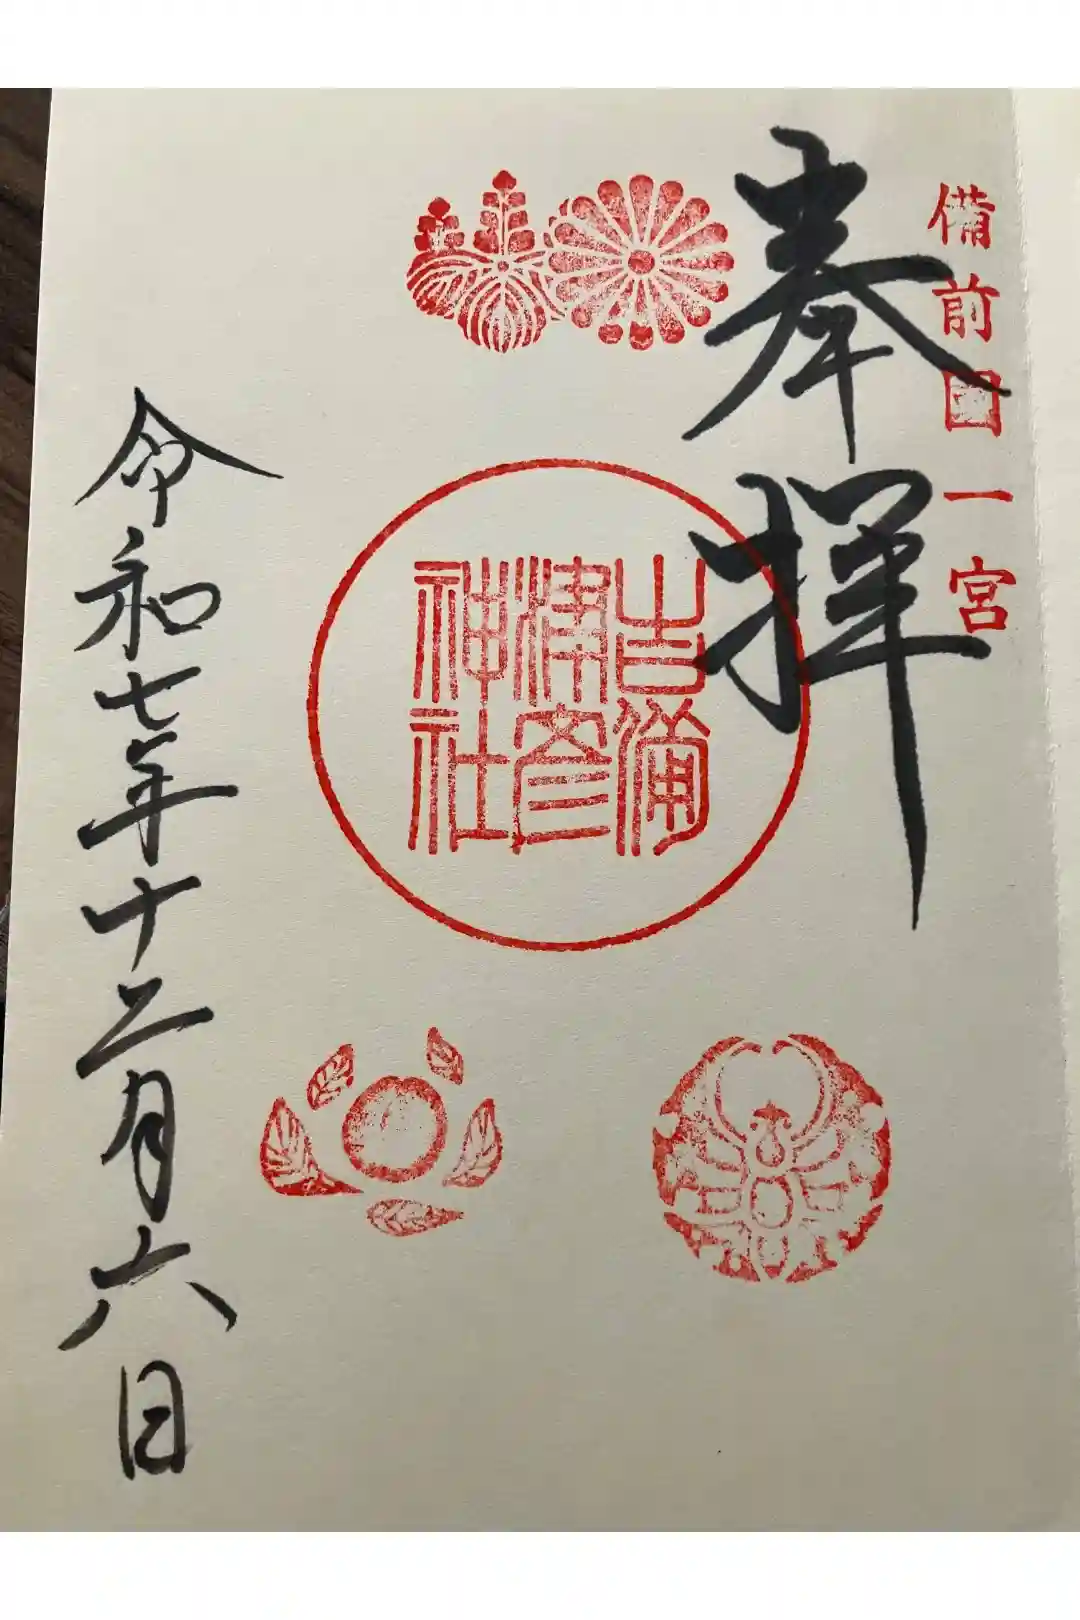 備前國一宮
奉拝
吉備
津彦
神社
令和七年十二月六日